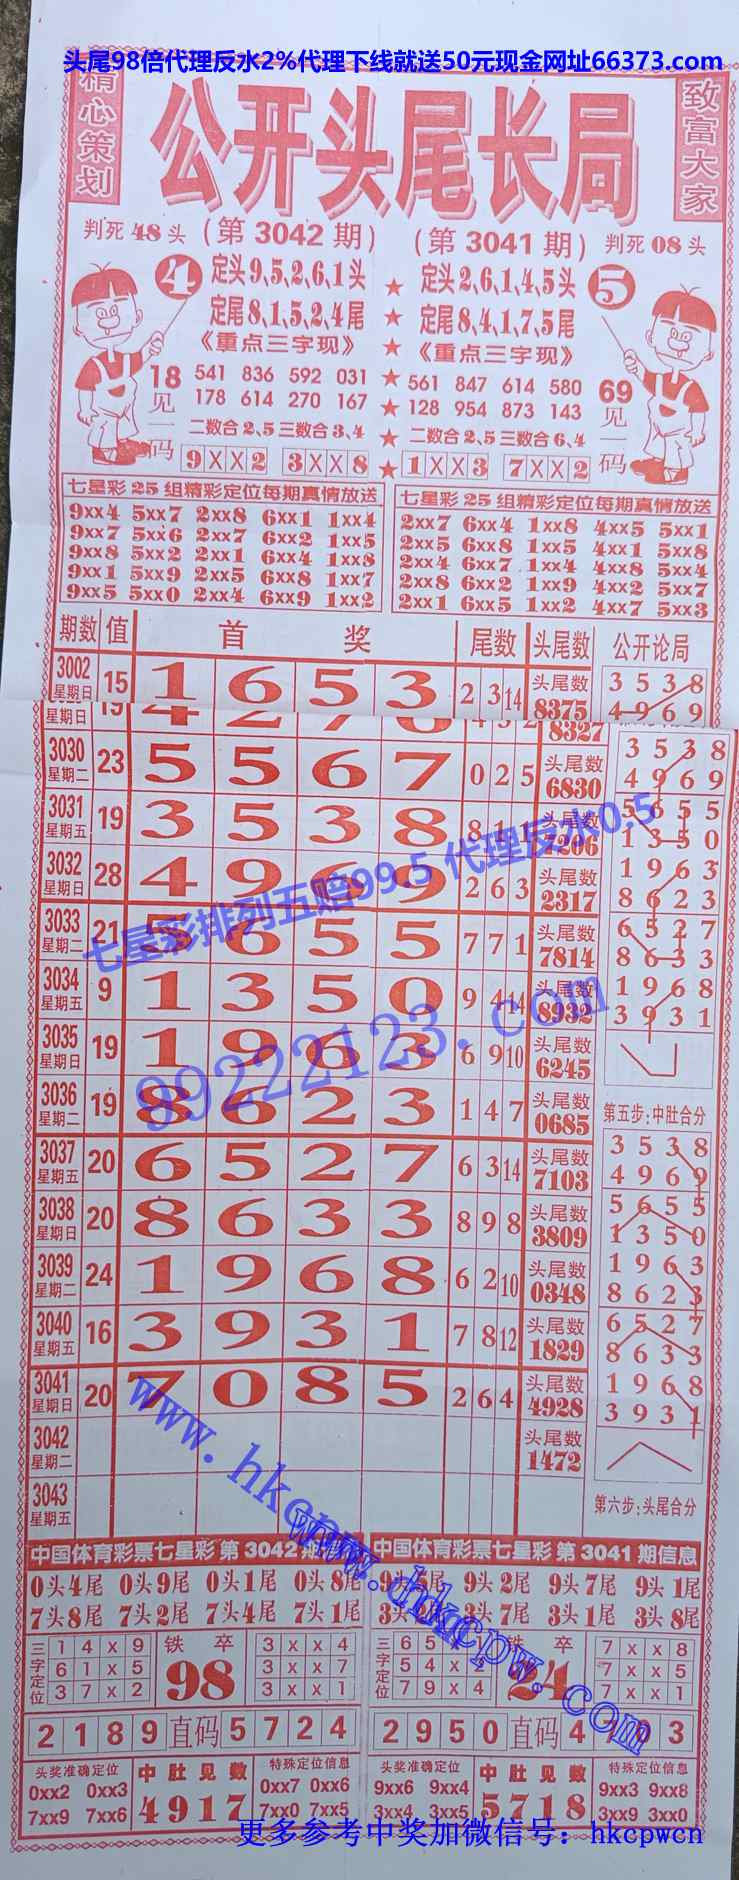 头尾98倍代理反水2%代理下线就送50元现金网址66373.com
精心策划
公开头尾长局
致富大家
判死48头 (第3042期) (第3041期) 判死08头
4 定头9,5,2,6,1头 ★ 定头2,6,1,4,5头 5
定尾8,1,5,2,4尾 ★ 定尾8,4,1,7,5尾
《重点三字现》 ★ 《重点三字现》
18见一码 541 836 592 031 ★ 561 847 614 580 69见一码
178 614 270 167 ★ 128 954 873 143
二数合2、5三数合3、4 ★ 二数合2、5三数合6、4
9XX2 3XX8 ★ 1XX3 7XX2
七星彩25组精彩定位每期真情放送 七星彩25组精彩定位每期真情放送
9xx4 5xx7 2xx8 6xx1 1xx4 2xx7 6xx4 1xx8 4xx5 5xx1
9xx7 5xx6 2xx7 6xx2 1xx5 2xx5 6xx8 1xx5 4xx1 5xx8
9xx8 5xx2 2xx1 6xx4 1xx8 2xx4 6xx7 1xx4 4xx8 5xx4
9xx1 5xx9 2xx5 6xx8 1xx7 2xx8 6xx2 1xx9 4xx2 5xx7
9xx5 5xx0 2xx4 6xx9 1xx2 2xx1 6xx5 1xx2 4xx7 5xx3
期数 值 首 奖 尾数 头尾数 公开论局
3002 星期日 15 1 6 5 3 2 3 14 头尾数 8375 3 5 3 8
星期日 19 8327 4 9 6 9
3030 星期二 23 5 5 6 7 0 2 5 头尾数 6830 3 5 3 8
4 9 6 9
3031 星期五 19 3 5 3 8 8 1 头尾数 7206 5 6 5 5
1 3 5 0
3032 星期日 28 4 9 6 9 2 6 3 头尾数 2317 1 9 6 3
8 6 2 3
3033 星期二 21 5 6 5 5 7 7 1 头尾数 7814 6 5 2 7
8 6 3 3
3034 星期五 9 1 3 5 0 9 4 14 头尾数 8932 1 9 6 8
3 9 3 1
3035 星期日 19 1 9 6 3 6 9 10 头尾数 6245
3036 星期二 19 8 6 2 3 1 4 7 头尾数 0685 第五步:中肚合分
3037 星期五 20 6 5 2 7 6 3 14 头尾数 7103 3 5 3 8
4 9 6 9
3038 星期日 20 8 6 3 3 8 9 8 头尾数 3809 5 6 5 5
1 3 5 0
3039 星期二 24 1 9 6 8 6 2 10 头尾数 0348 1 9 6 3
8 6 2 3
3040 星期五 16 3 9 3 1 7 8 12 头尾数 1829 6 5 2 7
8 6 3 3
3041 星期日 20 7 0 8 5 2 6 4 头尾数 4928 1 9 6 8
3 9 3 1
3042 星期二 头尾数 1472
3043 星期五 第六步:头尾合分
七星彩排列五赔99.5 代理反水0.5
89222123.com
www.hkcpw.com
www.hkcpw.com
中国体育彩票七星彩第3042期 中国体育彩票七星彩第3041期信息
0头4尾 0头9尾 0头1尾 0头8尾 9头2尾 9头7尾 9头1尾
7头8尾 7头2尾 7头4尾 7头1尾 3头7尾 3头1尾 3头8尾
三字定位 1 4 x 9 铁 卒 3 x x 4 三字定位 铁 卒 7 x x 8
6 1 x 5 98 3 x x 7 5 4 x 2 24 7 x x 5
3 7 x 2 3 x x 1 7 9 x 4 7 x x 1
2 1 8 9 直码 5 7 2 4 2 9 5 0 直码
头奖准确定位 中肚见数 特殊定位信息 头奖准确定位 中肚见数 特殊定位信息
0xx2 0xx3 4917 0xx7 0xx6 9xx6 9xx4 5718 9xx3 9xx8
7xx9 7xx6 7xx0 7xx5 3xx4 3xx5 3xx9 3xx0
更多参考中奖加微信号：hkcpwcn